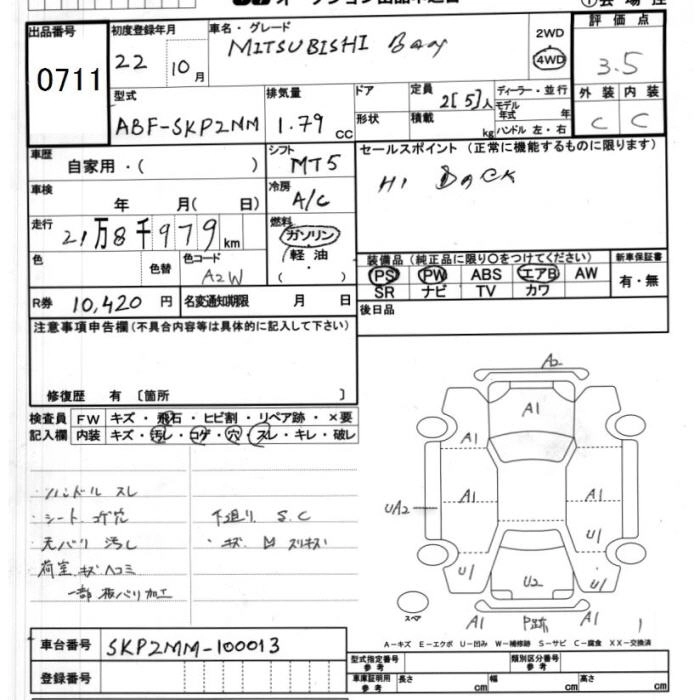 オークション出品申込書
出品番号 初度登録年月 車名・グレード 2WD 評価点
0711 22 10月 MITSUBISHI 4WD 3.5
型式 排気量 ドア 定員 2[5]人 ディーラー・並行 外装 内装
ABF-SKP2MM 1.79 CC 形状 積載 kg モデル年式 年 C C
ハンドル 左・右
車歴 自家用・( ) シフト MT5 セールスポイント (正常に機能するものに限ります)
車検 年 月( 日) 冷房 A/C HI BACK
走行 21万8千979km 燃料 ガソリン
軽油・
( )
色 色替 色コード A2W 装備品 (純正品に限り○をつけてください) 新車保証書
PS PW ABS エアB AW 有・無
SR ナビ TV カワ
R券 10,420円 名変通知期限 月 日 後日品
注意事項申告欄(不具合内容等は具体的に記入して下さい)
修復歴 有 [箇所 ]
検査員 FW キズ・飛石・ヒビ割・リペア跡・×要
記入欄 内装 キズ・汚レ・コゲ・穴・スレ・キレ・破レ
・ハンドル スレ
・シート コゲ穴 下廻り S.C
・天バリ 汚レ ・キズ スリキズ
荷室 キズ ヘコミ
一部 板バリ加工
A2
A1
A1 A1
A1 A1
UA2
U1
U1 U2 U1
スペア A1 P跡 A1
A-キズ E-エクボ U-凹み W-補修跡 S-サビ C-腐食 XX-交換済
車台番号 SKP2MM-100013
型式指定番号 参考 類別区分番号 参考
登録番号 車庫証明用 参考 長さ cm 幅 cm 高さ cm